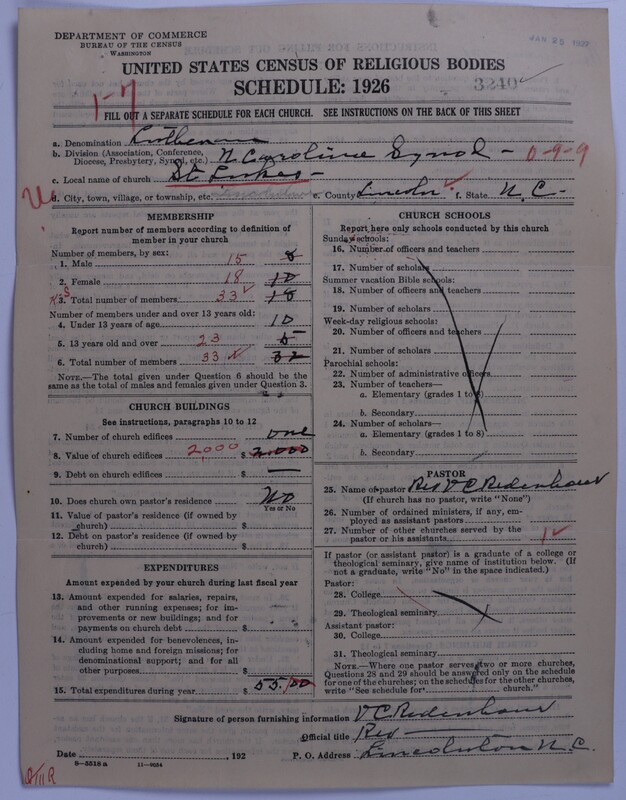 DEPARTMENT OF COMMERCE
BUREAU OF THE CENSUS
WASHINGTON
UNITED STATES CENSUS OF RELIGIOUS BODIES
SCHEDULE: 1926
3240
1-7
FILL OUT A SEPARATE SCHEDULE FOR EACH CHURCH. SEE INSTRUCTIONS ON THE BACK OF THIS SHEET
a. Denomination Lutheran
b. Division (Association, Conference, Diocese, Presbytery, Synod, etc.) N. Carolina Synod - 0-9-9
c. Local name of church St. Lukes
d. City, town, village, or township, etc. e. County Lincoln f. State N.C.
MEMBERSHIP
Report number of members according to definition of
member in your church
Number of members, by sex:
1. Male 15 8
2. Female 18 10
3. Total number of members 33 18
Number of members under and over 13 years old:
4. Under 13 years of age 10
5. 13 years old and over 23 5
6. Total number of members 33 32
NOTE.—The total given under Question 6 should be the
same as the total of males and females given under Question 3.
CHURCH BUILDINGS
See instructions, paragraphs 10 to 12
7. Number of church edifices one
8. Value of church edifices 2,000 $ 2,000
9. Debt on church edifices $ —
10. Does church own pastor's residence No
Yes or No
11. Value of pastor's residence (if owned by
church) $
12. Debt on pastor's residence (if owned by
church) $
EXPENDITURES
Amount expended by your church during last fiscal year
13. Amount expended for salaries, repairs,
and other running expenses; for im-
provements or new buildings; and for
payments on church debt $
14. Amount expended for benevolences, in-
cluding home and foreign missions; for
denominational support; and for all
other purposes $
15. Total expenditures during year $ 55.00
CHURCH SCHOOLS
Report here only schools conducted by this church
Sunday schools:
16. Number of officers and teachers
17. Number of scholars
Summer vacation Bible schools:
18. Number of officers and teachers
19. Number of scholars
Week-day religious schools:
20. Number of officers and teachers
21. Number of scholars
Parochial schools:
22. Number of administrative officers
23. Number of teachers—
a. Elementary (grades 1 to 8)
b. Secondary
24. Number of scholars—
a. Elementary (grades 1 to 8)
b. Secondary
PASTOR
25. Name of pastor Rev V C Ridenhour
(If church has no pastor, write "None")
26. Number of ordained ministers, if any, em-
ployed as assistant pastors
27. Number of other churches served by the
pastor or his assistants 1
If pastor (or assistant pastor) is a graduate of a college or
theological seminary, give name of institution below. (If
not a graduate, write "No" in the space indicated.)
Pastor:
28. College
29. Theological seminary
Assistant pastor:
30. College
31. Theological seminary
NOTE.—Where one pastor serves two or more churches,
Questions 28 and 29 should be answered only on the schedule
for one of the churches; on the schedules for the other churches,
write "See schedule for church."
Signature of person furnishing information V C Ridenhour
Official title Rev
Date , 192 P. O. Address Lincolnton N.C.
8—5518 a 11—9054